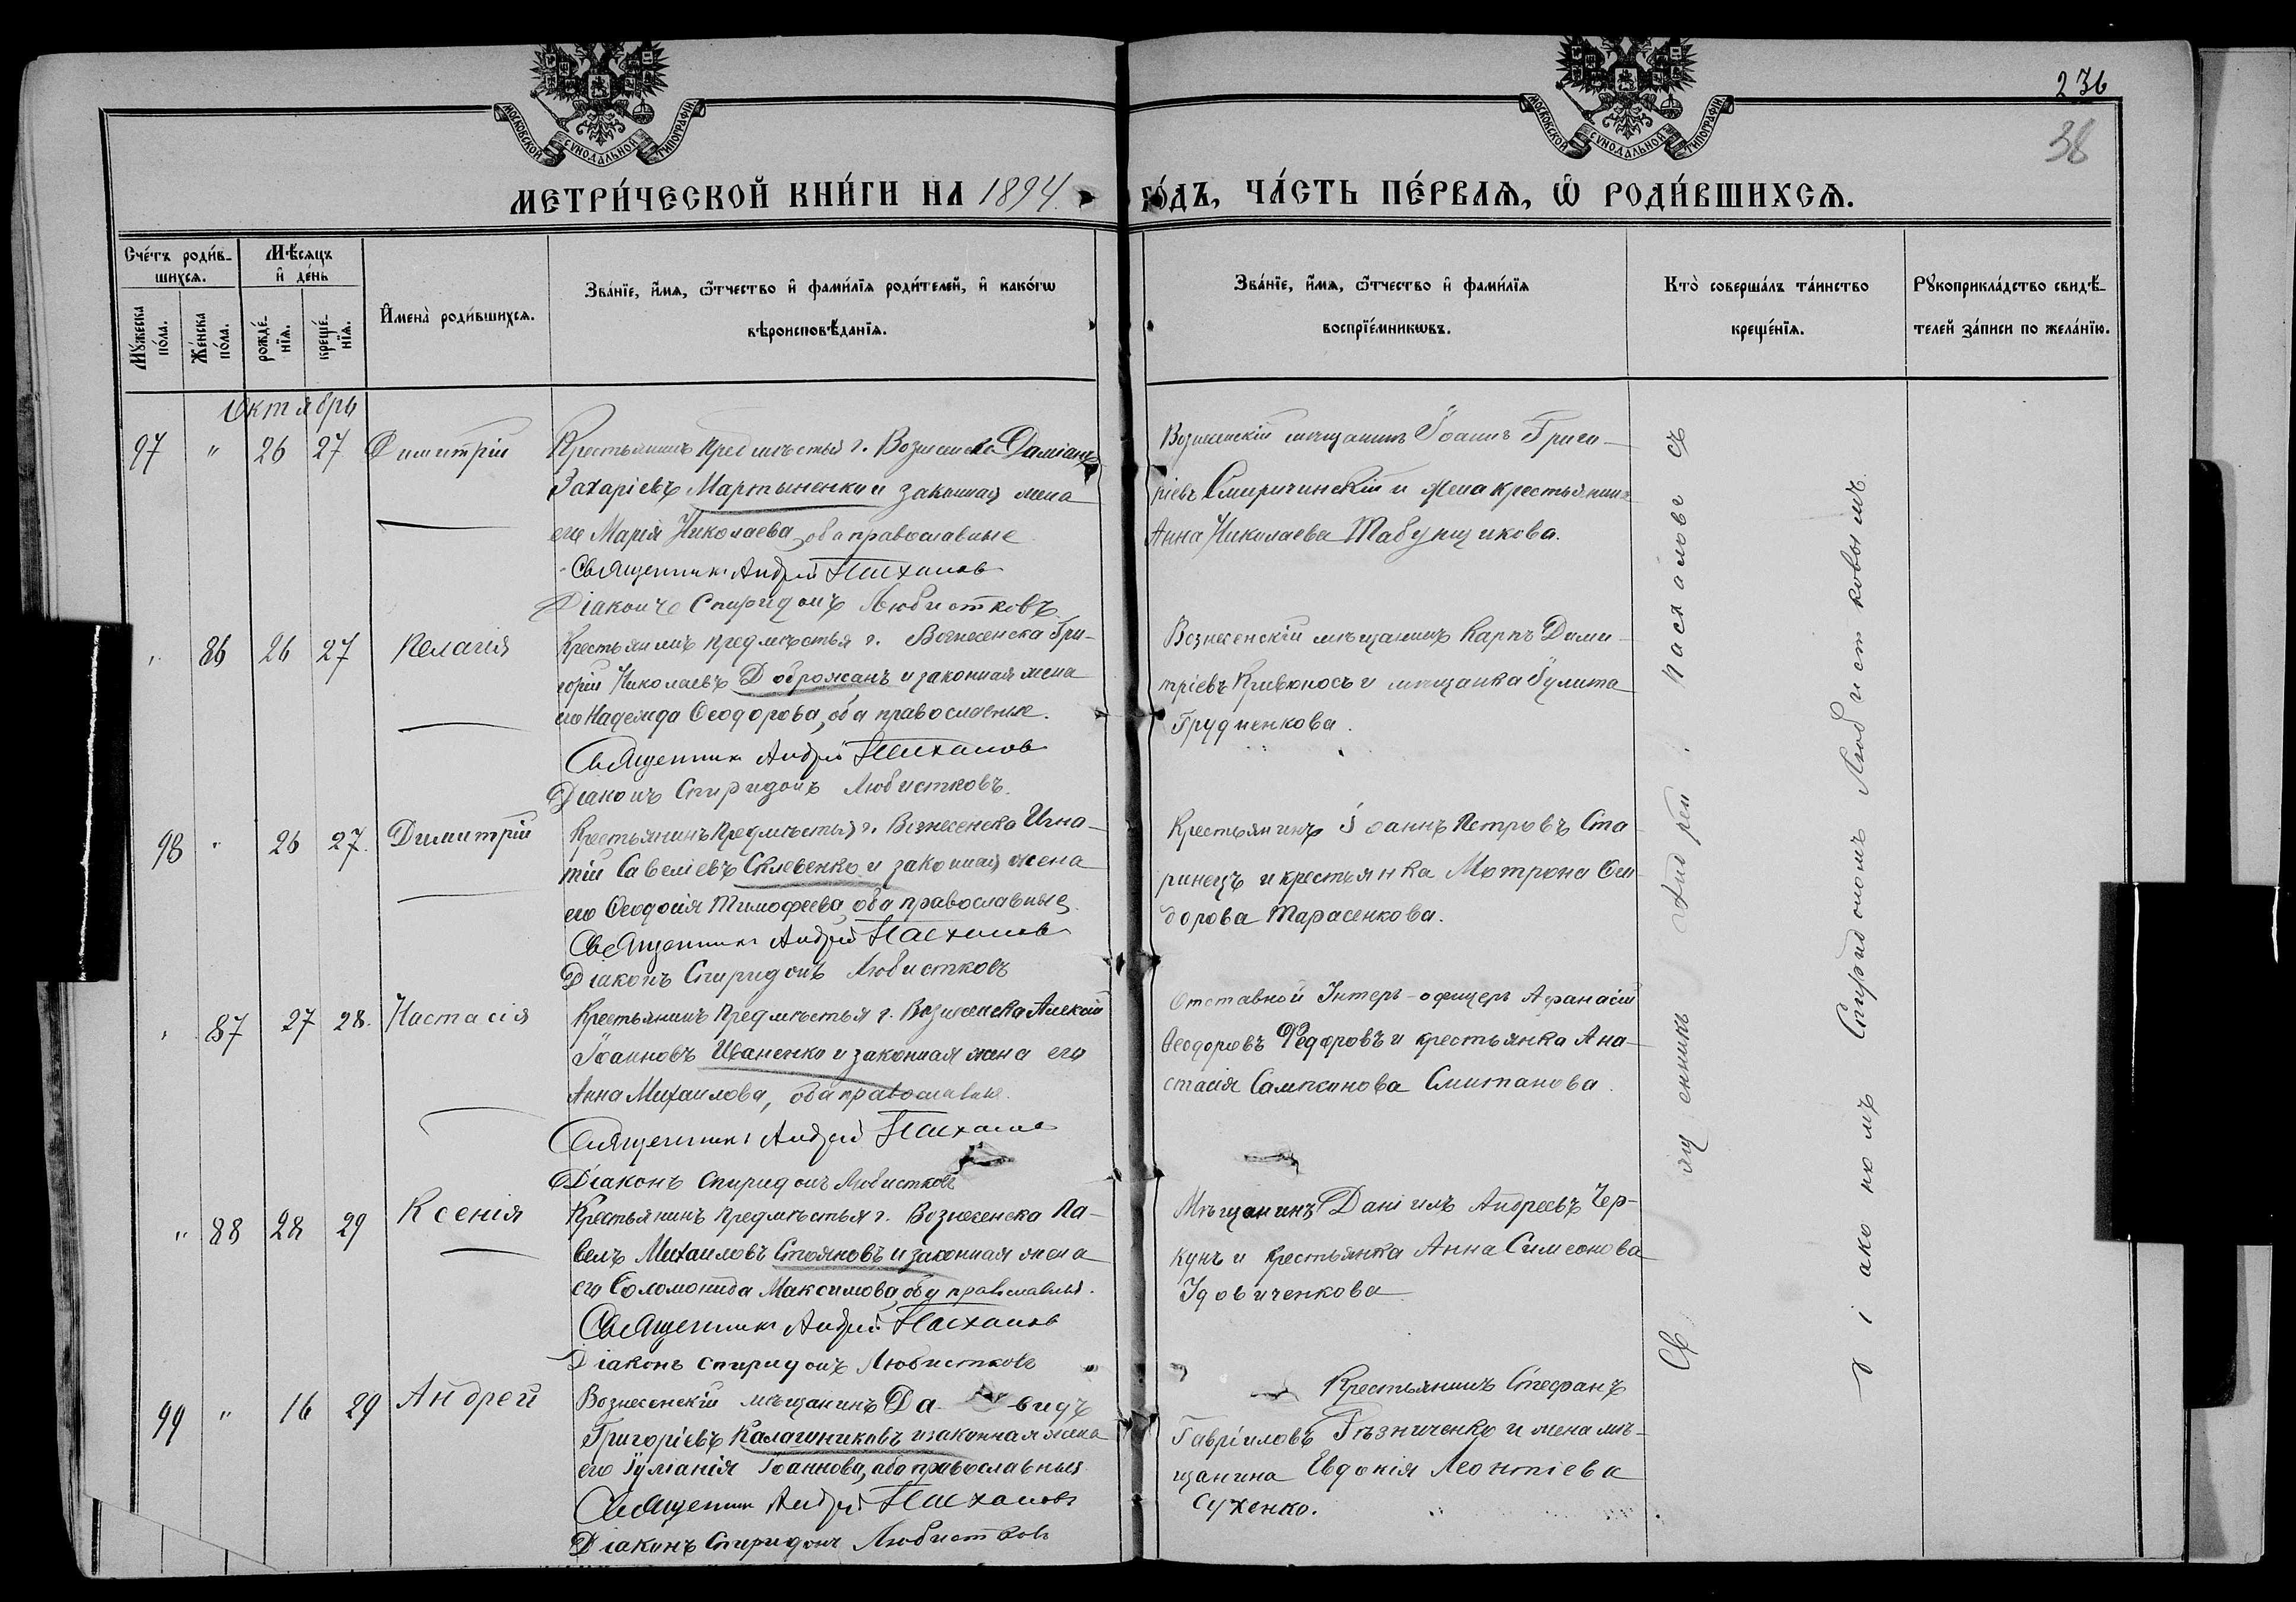 236
38
МОСКОВСКОЙ СѴНОДАЛЬНОЙ ТИПОГРАФІИ
МОСКОВСКОЙ СѴНОДАЛЬНОЙ ТИПОГРАФІИ
МЕТРИ́ЧЕСКОЙ КНИ́ГИ НА 1894 ГО́ДЪ, ЧА́СТЬ ПЕ́РВАѦ, Ѡ҆ РОДИ́ВШИХСѦ.
Счетъ роди́в-
шихсѧ.
Мѣсѧцъ
и҆ де́нь
Мꙋжеска по́ла.
Же́нска по́ла.
рожде́-
нїѧ.
креще́-
нїѧ.
И҆мена̀ роди́вшихсѧ.
Зва́нїе, и҆́мѧ, ѻ҆́тчество и҆ фами́лїѧ роди́телей, и҆ како́гѡ
вѣроисповѣ́данїѧ.
Зва́нїе, и҆́мѧ, ѻ҆́тчество и҆ фами́лїѧ
воспрїе́мникѡвъ.
Кто̀ соверша́лъ та́инство
креще́нїѧ.
Рꙋкоприкла́дство свидѣ́-
телей за́писи по жела́нїю.
Октябрь
97 " 26 27 Димитрій
Крестьянинъ предмѣстья г. Вознесенска Даміанъ
Захаріевъ Мартыненко и законная жена
его Марія Николаева, оба православные
Священникъ Андрей Пасхаловъ
Діаконъ Спиридонъ Любистковъ
Вознесенскій мѣщанинъ Іоаннъ Григо-
ріевъ Смиричинскій и жена крестьянина
Анна Николаева Табунщикова.
" 86 26 27 Пелагія
Крестьянинъ предмѣстья г. Вознесенска Гри-
горій Николаевъ Доброжанъ и законная жена
его Надежда Ѳеодорова, оба православные.
Священникъ Андрей Пасхаловъ
Діаконъ Спиридонъ Любистковъ.
Вознесенскій мѣщанинъ Карпъ Дими-
тріевъ Кривоносъ и мѣщанка Іулита
Грудненкова.
98 " 26 27. Димитрій
Крестьянинъ предмѣстья г. Вознесенска Игна-
тій Савеліевъ и законная жена
его Ѳеодосія Тимофеева, оба православные
Священникъ Андрей Пасхаловъ
Діаконъ Спиридонъ Любистковъ
Крестьянинъ Іоаннъ Петровъ Ста-
ринецъ и крестьянка Мотрона
дорова Тарасенкова.
" 87 27 28. Настасія
Крестьянинъ предмѣстья г. Вознесенска Алексій
Іоанновъ Иваненко и законная жена его
Анна Михаилова, оба православные.
Священникъ Андрей Пасхаловъ
Діаконъ Спиридонъ Любистковъ
Отставной Унтеръ-офицеръ Афанасій
Ѳеодоровъ Федоровъ и крестьянка Ана-
стасія Сампсонова
" 88 28 29 Ксенія
Крестьянинъ предмѣстья г. Вознесенска Па-
велъ Михаиловъ Стояновъ и законная жена
его Соломонида Максимова, оба православные.
Священникъ Андрей Пасхаловъ
Діаконъ Спиридонъ Любистковъ
Мѣщанинъ Даніилъ Андреевъ Чер-
кунъ и крестьянка Анна Симеонова
Удовиченкова
99 " 16 29 Андрей
Вознесенскій мѣщанинъ Да видъ
Григоріевъ Калашниковъ и законная жена
его Іуліанія Іоаннова, оба православные
Священникъ Андрей Пасхаловъ
Діаконъ Спиридонъ Любистковъ
Крестьянинъ Стефанъ
Гавріиловъ Рѣзниченко и жена мѣ-
щанина Евдокія Леонтіева
Сухенко.
Священникъ Андрей Пасхаловъ съ
діакономъ Спиридономъ Любистковымъ.